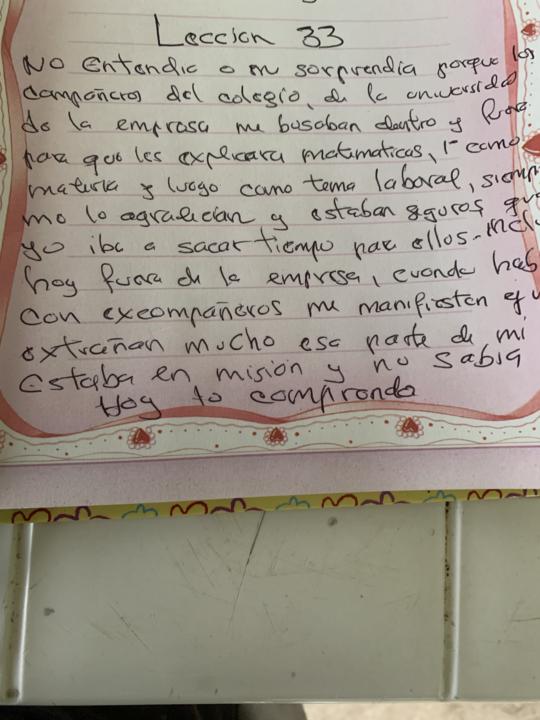 Leccion 33
No entendia o m sorprendia porque los
compañeros del colegio, de la universidad
de la empresa me buscaban dentro y fuera
para que les explicara matematicas, 1º como
materia y luego como tema laboral, siemp
me lo agradecian y estaban seguros que
yo iba a sacar tiempo para ellos. Inclu
hoy fuera de la empresa, cuando hab
con excompañeros me manifiesten q
extrañan mucho esa parte de mi
Estaba en misión y no sabia
Hoy lo comprendo